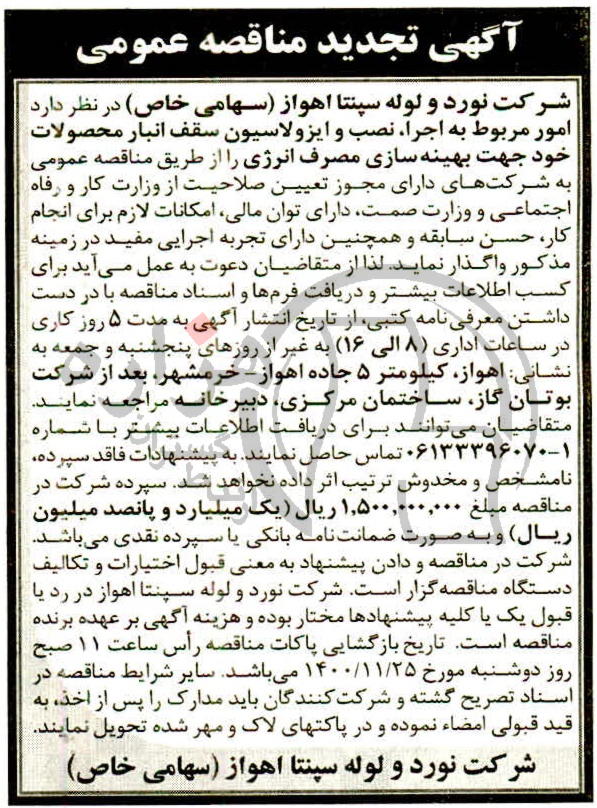 آگهی تجدید مناقصه عمومی
شرکت نورد و لوله سپنتا اهواز (سهامی خاص) در نظر دارد
امور مربوط به اجرا، نصب و ایزولاسیون سقف انبار محصولات
خود جهت بهینه سازی مصرف انرژی را از طریق مناقصه عمومی
به شرکت‌های دارای مجوز تعیین صلاحیت از وزارت کار و رفاه
اجتماعی و وزارت صمت، دارای توان مالی، امکانات لازم برای انجام
کار، حسن سابقه و همچنین دارای تجربه اجرایی مفید در زمینه
مذکور واگذار نماید. لذا از متقاضیان دعوت به عمل می‌آید برای
کسب اطلاعات بیشتر و دریافت فرم‌ها و اسناد مناقصه با در دست
داشتن معرفی‌نامه کتبی، از تاریخ انتشار آگهی به مدت ۵ روز کاری
در ساعات اداری (۸ الی ۱۶) به غیر از روزهای پنجشنبه و جمعه به
نشانی: اهواز، کیلومتر ۵ جاده اهواز - خرمشهر، بعد از شرکت
بوتان گاز، ساختمان مرکزی، دبیرخانه مراجعه نمایند.
متقاضیان می‌توانند برای دریافت اطلاعات بیشتر با شماره
۰۶۱۳۳۳۹۶۰۷۰-۱ تماس حاصل نمایند. به پیشنهادات فاقد سپرده،
نامشخص و مخدوش ترتیب اثر داده نخواهد شد. سپرده شرکت در
مناقصه مبلغ ۱,۵۰۰,۰۰۰,۰۰۰ ریال (یک میلیارد و پانصد میلیون
ریال) و به صورت ضمانت‌نامه بانکی یا سپرده نقدی می‌باشد.
شرکت در مناقصه و دادن پیشنهاد به معنی قبول اختیارات و تکالیف
دستگاه مناقصه‌گزار است. شرکت نورد و لوله سپنتا اهواز در رد یا
قبول یک یا کلیه پیشنهادها مختار بوده و هزینه آگهی بر عهده برنده
مناقصه است. تاریخ بازگشایی پاکات مناقصه رأس ساعت ۱۱ صبح
روز دوشنبه مورخ ۱۴۰۰/۱۱/۲۵ می‌باشد. سایر شرایط مناقصه در
اسناد تصریح گشته و شرکت‌کنندگان باید مدارک را پس از اخذ، به
قید قبولی امضاء نموده و در پاکتهای لاک و مهر شده تحویل نمایند.
شرکت نورد و لوله سپنتا اهواز (سهامی خاص)